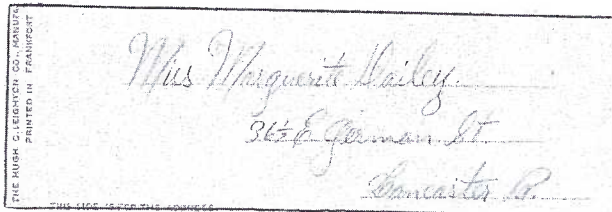 THE HUGH C. LEIGHTON CO., MANUFA
PRINTED IN FRANKFORT
Miss Marguerite Dailey
36½ E. German St
Lancaster Pa.
THIS SIDE IS FOR THE ADDRESS